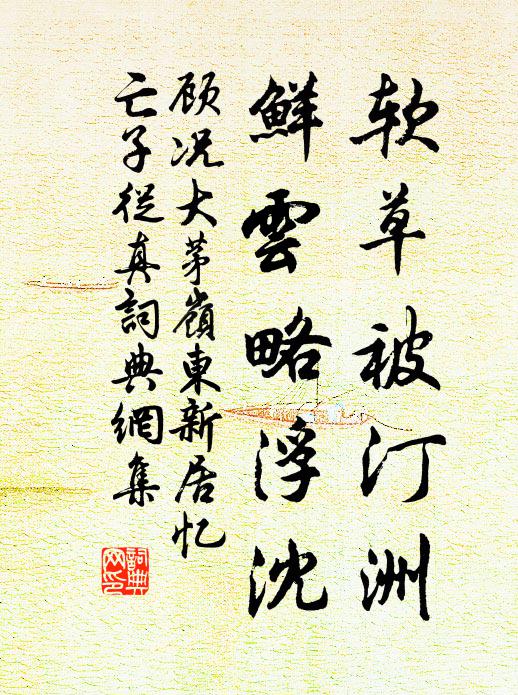 软草被汀洲
鮮雲略浮沈
顾况大茅嶺東新居忆
亡子從真詞典網集
詞典网印